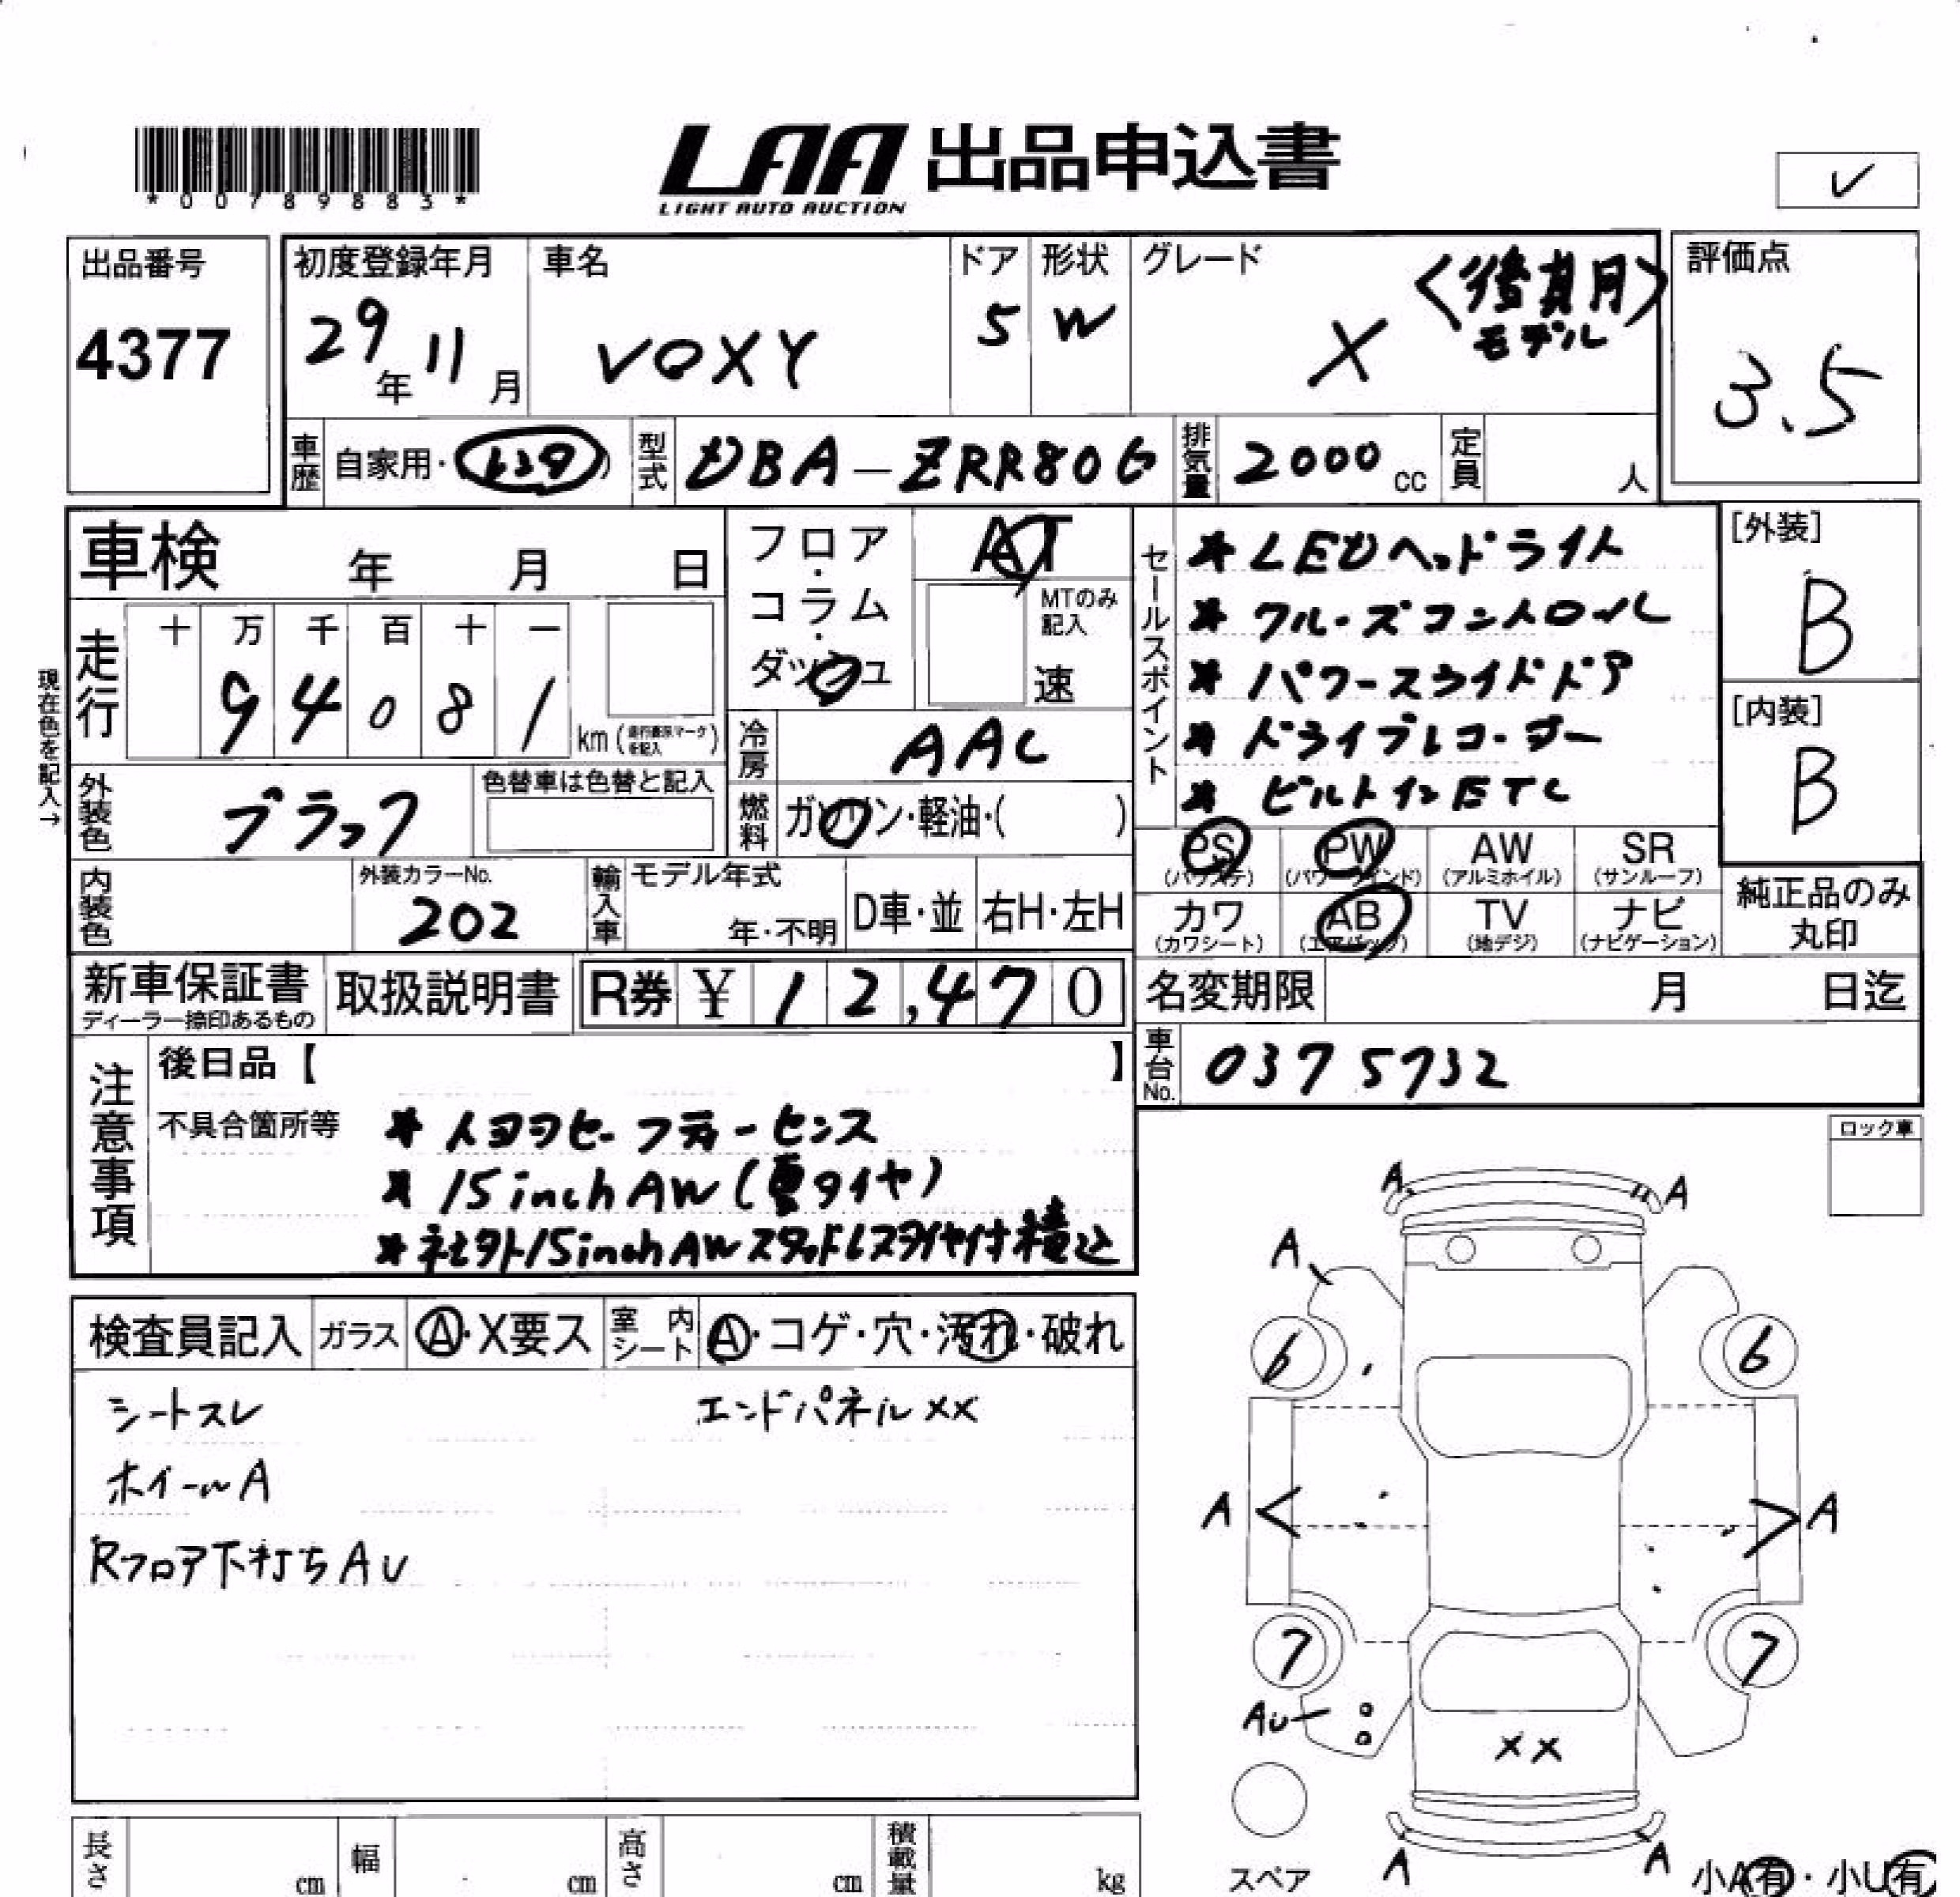 *00789883*
LAA 出品申込書
LIGHT AUTO AUCTION
✓
出品番号
4377
初度登録年月
29年11月
車名
VOXY
ドア
5
形状
W
グレード
X
<後期
モデル>
評価点
3.5
車歴
自家用・(レンタ)
型式
DBA-ZRR80G
排気量
2000cc
定員
人
車検 年 月 日
フロア・コラム・ダッシュ
AT
MTのみ記入
速
セールスポイント
*LEDヘッドライト
*クルーズコントロール
*パワースライドドア
*ドライブレコーダー
*ビルトインETC
[外装]
B
[内装]
B
現在色を記入→
走行
十 万 千 百 十 一
9 4 0 8 1
km(走行表示マークを記入)
冷房
AAC
外装色
ブラック
色替車は色替と記入
燃料
ガソリン・軽油・( )
PS
(パワステ)
PW
(パワーウインド)
AW
(アルミホイル)
SR
(サンルーフ)
カワ
(カワシート)
AB
(エアバック)
TV
(地デジ)
ナビ
(ナビゲーション)
純正品のみ
丸印
内装色
外装カラーNo.
202
輸入車
モデル年式
年・不明
D車・並
右H・左H
新車保証書
ディーラー捺印あるもの
取扱説明書
R券 ¥ 12,470
名変期限 月 日迄
車台No.
0375732
注意事項
後日品【 】
不具合箇所等
*15inchAW(夏タイヤ)
*社外15inchAWスタッドレスタイヤ付積込
ロック車
検査員記入
ガラス
A・X要ス
室内シート
A・コゲ・穴・汚れ・破れ
シートスレ
エンドパネルXX
ホイールA
Rフロア下打ちAU
A A
A
6 6
A A
7 7
AU
XX
A A
スペア
小A有・小U有
長さ cm
幅 cm
高さ cm
積載量 kg